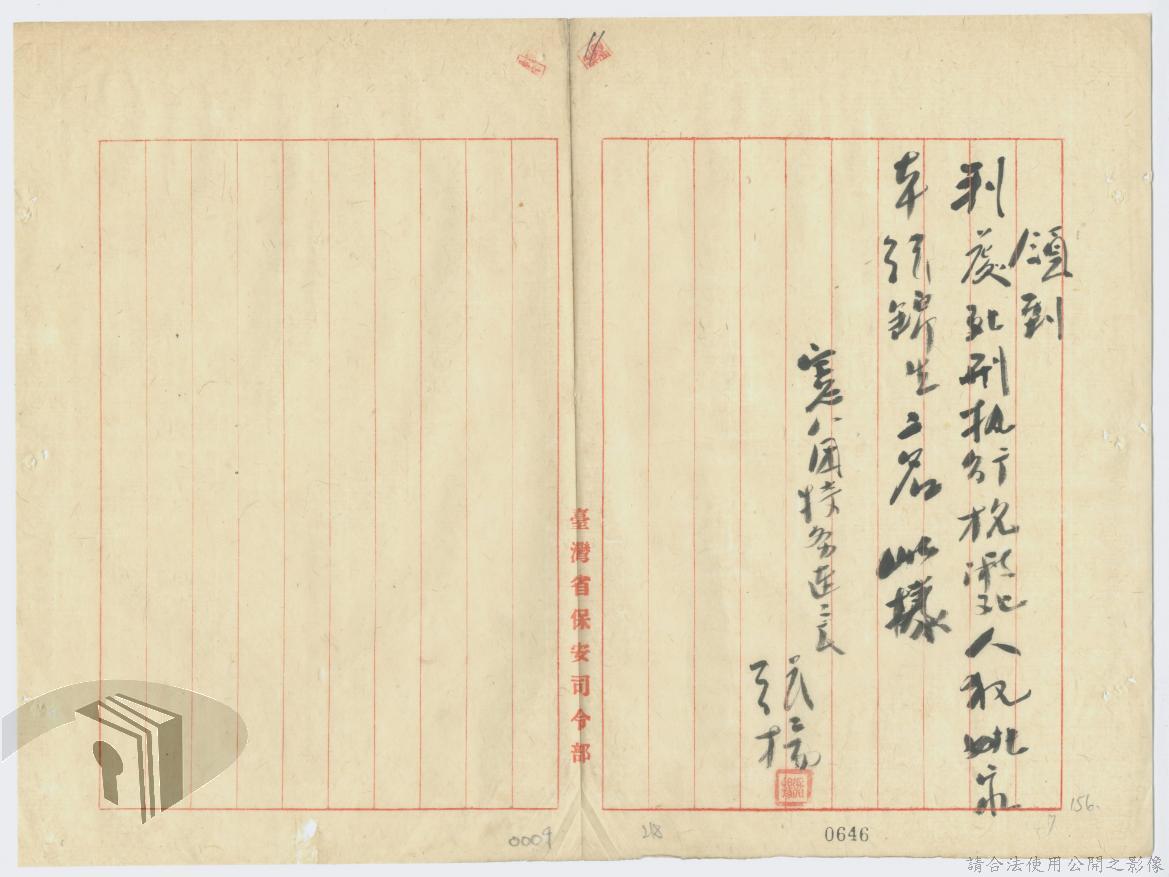 領到
判處死刑执行枪斃人犯姚永
来張錦生二名 此據
憲八团特务連々長
張
臺灣省保安司令部
156.
7
0646
218
0009
請合法使用公開之影像